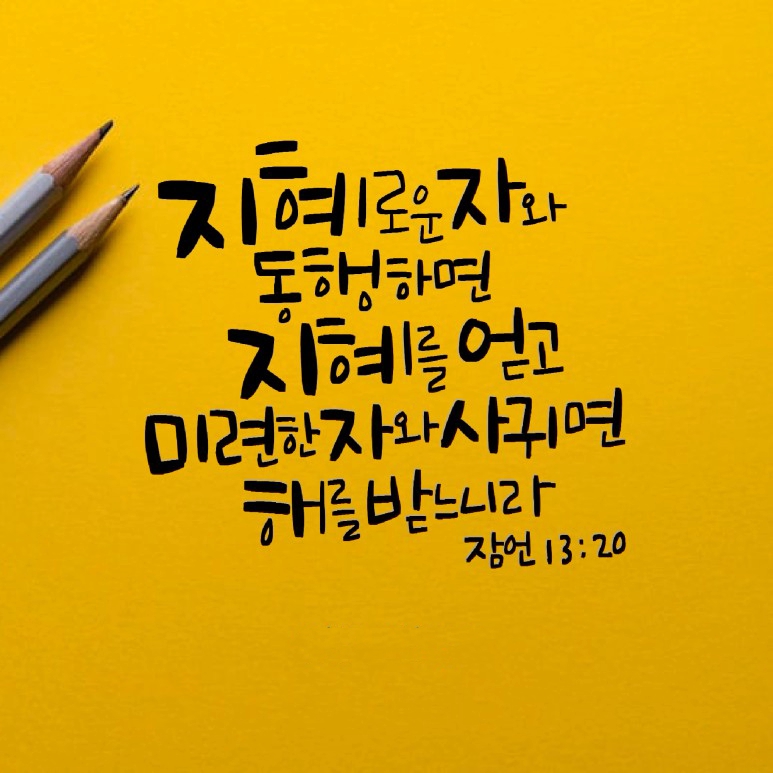 지혜로운자와
동행하면
지혜를 얻고
미련한자와사귀면
해를받느니라
잠언 13:20